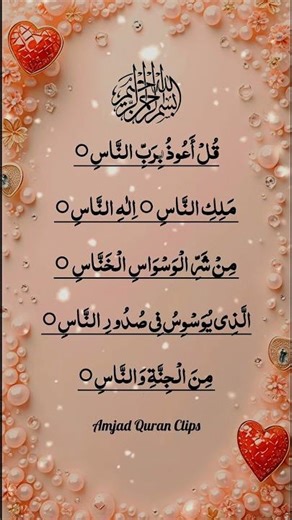 بسم الله الرحمن الرحيم
قُلْ أَعُوذُ بِرَبِّ النَّاسِ ○
مَلِكِ النَّاسِ ○ اِلٰهِ النَّاسِ ○
مِنْ شَرِّ الْوَسْوَاسِ الْخَنَّاسِ ○
الَّذِى يُوَسْوِسُ فِى صُدُورِ النَّاسِ ○
مِنَ الْجِنَّةِ وَالنَّاسِ ○
Amjad Quran Clips